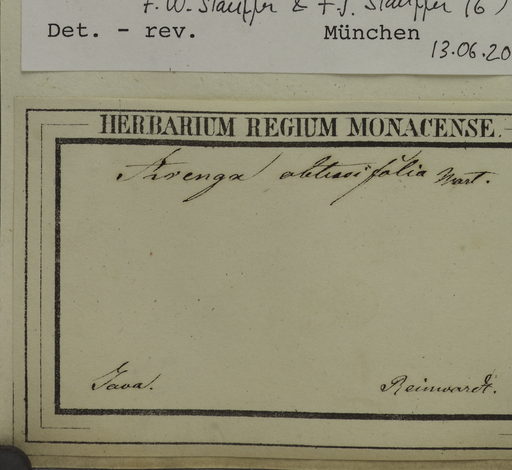 F. W. Stauffer & F. J. Stauffer (G)
Det. - rev. München
13.06.20
HERBARIUM REGIUM MONACENSE.
Arenga obtusifolia Mart.
Java. Reinwardt.